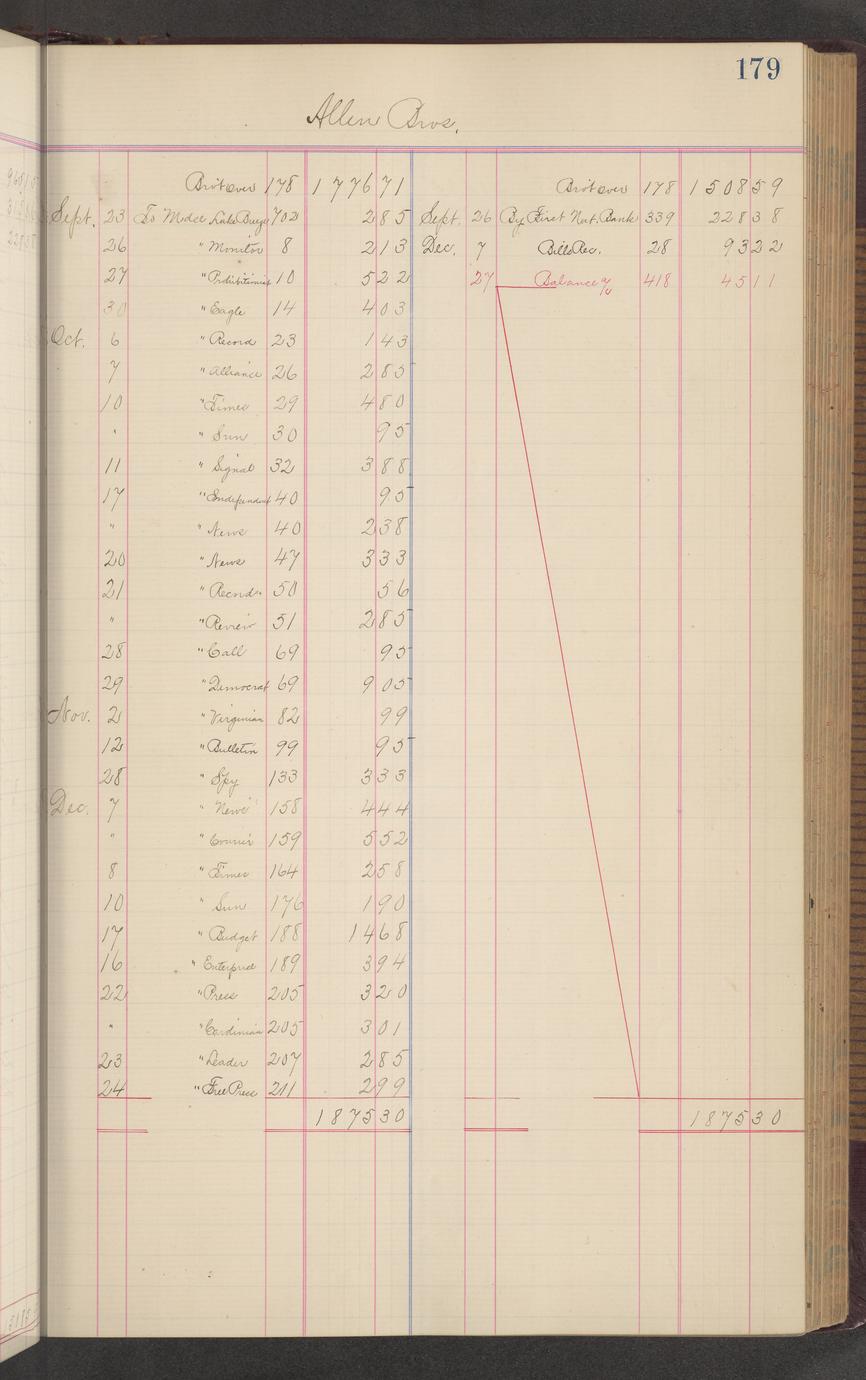 179
Allen Bros.
Bro't over 178 1 776 71 Bro't over 178 1 508 59
Sept. 23 To Mdse Lake Breeze 702 2 85 Sept. 26 By First Nat. Bank 339 228 38
26 " Monitor 8 2 13 Dec. 7 Bills Rec. 28 93 22
27 " Prohibitionist 10 5 22 27 Balance 418 45 11
30 " Eagle 14 4 03
Oct. 6 " Record 23 1 43
7 " Alliance 26 2 85
10 " Times 29 4 80
" " Sun 30 95
11 " Signal 32 3 88
17 " Independent 40 95
" " News 40 2 38
20 " News 47 3 33
21 " Record 50 56
" " Review 51 2 85
28 " Call 69 95
29 " Democrat 69 9 05
Nov. 2 " Virginian 82 99
12 " Bulletin 99 95
28 " Spy 133 3 33
Dec. 7 " News 158 4 44
" " Courier 159 5 52
8 " Times 164 2 58
10 " Sun 176 1 90
17 " Budget 188 14 68
16 " Enterprise 189 3 94
22 " Press 205 3 20
" " 205 3 01
23 " Leader 207 2 85
24 " Free Press 211 2 99
1 875 30 1 875 30